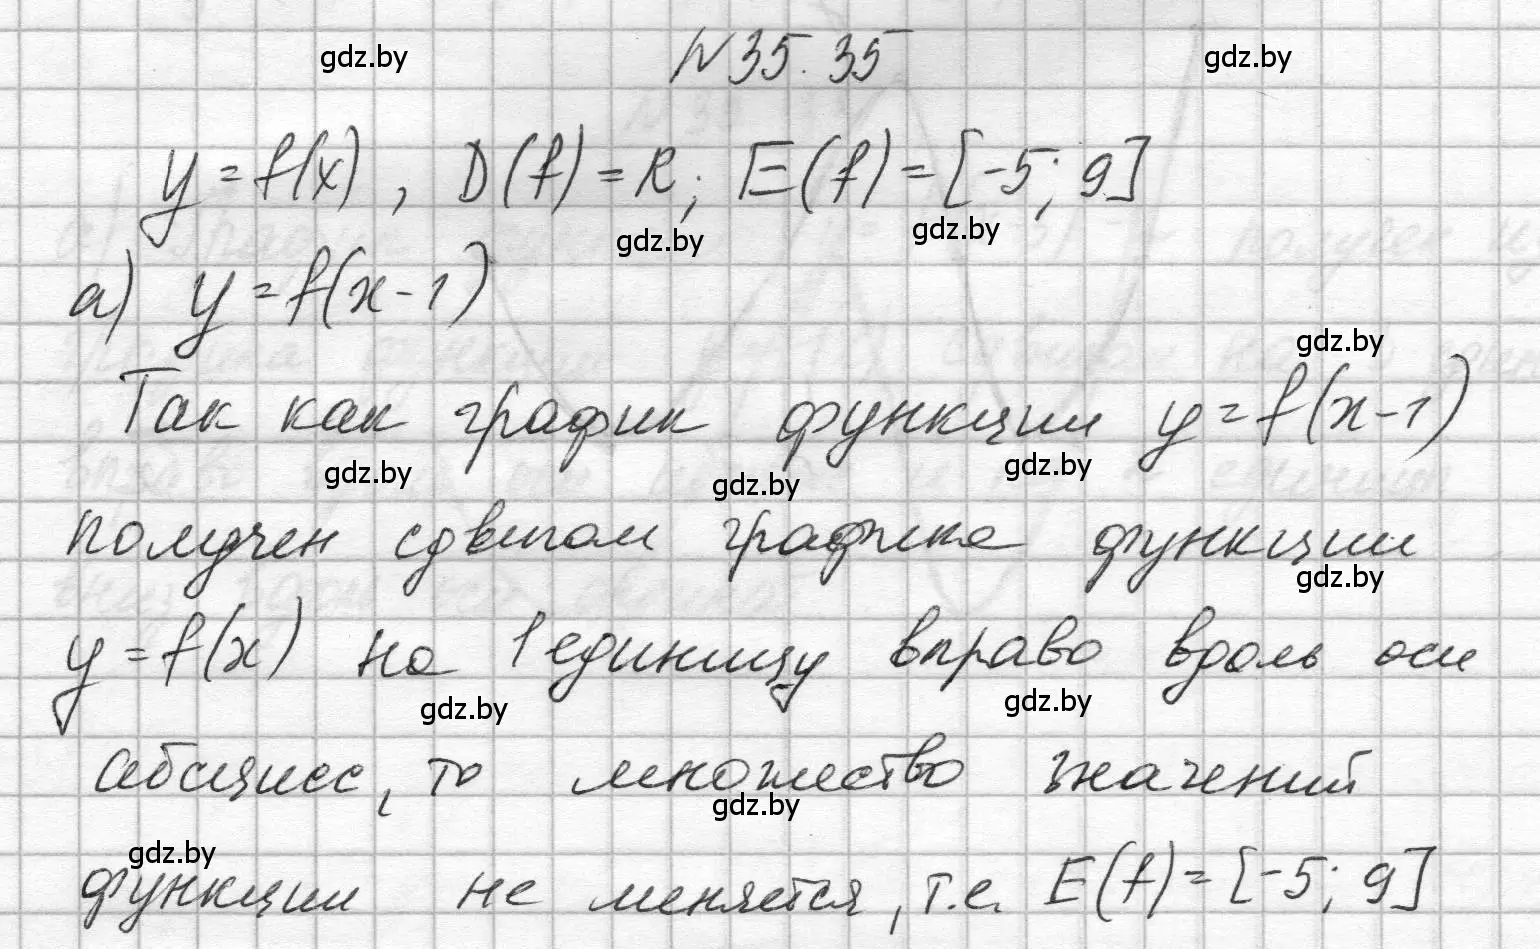 N 35.35
gdz.by
gdz.by
y = f(x), D(f) = R; E(f) = [-5; 9]
gdz.by
gdz.by
а) y = f(x-1)
gdz.by
Так как график функции y = f(x-1)
gdz.by
gdz.by
gdz.by
получен сдвигом графика функции
gdz.by
y = f(x) на 1 единицу вправо вдоль оси
gdz.by
gdz.by
абсцисс, то множество значений
gdz.by
gdz.by
функции не меняется, т.е. E(f) = [-5; 9]